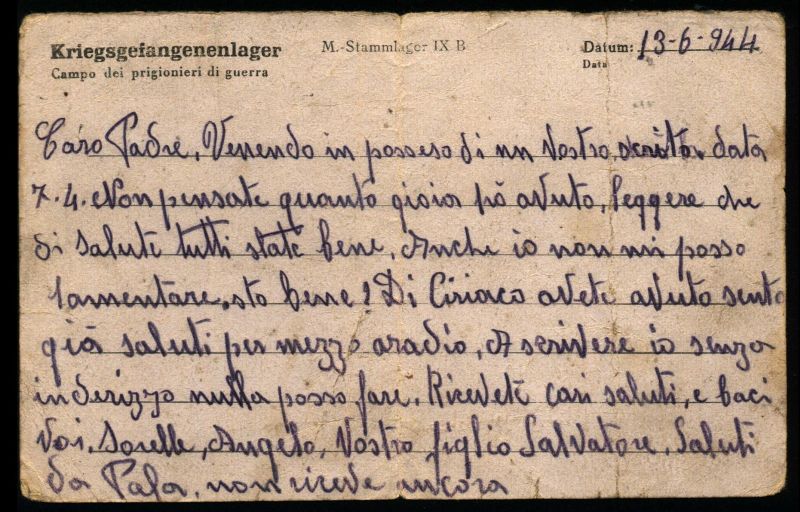 Kriegsgefangenenlager
M.-Stammlager IX B
Datum: 13-6-944
Campo dei prigionieri di guerra
Data
Caro Padre, Venendo in posseso di un Vostro scrito. data
7.4. Non pensate quanto gioia hò avuto, leggere che
di salute tutti state bene, Anche io non mi posso
lamentare, sto bene! Di Ciriaco avete avuto sento
già saluti per mezzo aradio, A scrivere io senza
inderizzo nulla posso fare. Ricevete cari saluti, e baci
Voi, Sorelle, Angelo, Vostro figlio Salvatore. Saluti
da Pala, non riceve ancora